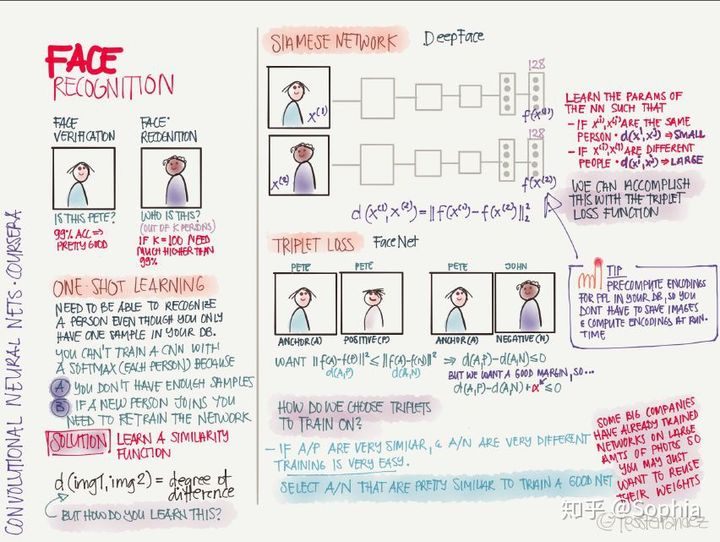 CONVOLUTIONAL NEURAL NETS · COURSERA
FACE
RECOGNITION
FACE
VERIFICATION
IS THIS PETE?
99% ACC ⇒
PRETTY GOOD
FACE
WHO IS THIS?
(OUT OF K PERSONS)
IF K=100 NEED
MUCH HIGHER THAN
99%
ONE SHOT LEARNING
NEED TO BE ABLE TO RECOGNIZE
A PERSON EVEN THOUGH YOU ONLY
HAVE ONE SAMPLE IN YOUR DB.
YOU CAN'T TRAIN A CNN WITH
A SOFTMAX (EACH PERSON) BECAUSE
A YOU DON'T HAVE ENOUGH SAMPLES
B IF A NEW PERSON JOINS YOU
NEED TO RETRAIN THE NETWORK
SOLUTION LEARN A SIMILARITY
FUNCTION
d(img1, img2) = degree of
difference
BUT HOW DO YOU LEARN THIS?
SIAMESE NETWORK DeepFace
x⁽¹⁾
128
f(x⁽¹⁾)
x⁽²⁾
128
f(x⁽²⁾)
d(x⁽¹⁾, x⁽²⁾) = ||f(x⁽¹⁾) - f(x⁽²⁾)||₂²
LEARN THE PARAMS OF
THE NN SUCH THAT
- IF x⁽ⁱ⁾, x⁽ʲ⁾ ARE THE SAME
PERSON · d(xⁱ, xʲ) ⇒ SMALL
- IF x⁽ⁱ⁾, x⁽ʲ⁾ ARE DIFFERENT
PEOPLE · d(xⁱ, xʲ) ⇒ LARGE
WE CAN ACCOMPLISH
THIS WITH THE TRIPLET
LOSS FUNCTION
TIP
PRECOMPUTE ENCODINGS
FOR PPL IN YOUR DB, SO YOU
DONT HAVE TO SAVE IMAGES
& COMPUTE ENCODINGS AT RUN-
TIME
TRIPLET LOSS FaceNet
PETE PETE PETE JOHN
ANCHOR(A) POSITIVE(P) ANCHOR(A) NEGATIVE(N)
WANT ||f(A)-f(P)||² ≤ ||f(A)-f(N)||² ⇒ d(A,P)-d(A,N) ≤ 0
d(A,P) d(A,N) BUT WE WANT A GOOD MARGIN, SO...
d(A,P)-d(A,N)+α ≤ 0
HOW DO WE CHOOSE TRIPLETS
TO TRAIN ON?
- IF A/P ARE VERY SIMILAR, & A/N ARE VERY DIFFERENT
TRAINING IS VERY EASY.
SELECT A/N THAT ARE PRETTY SIMILAR TO TRAIN A GOOD NET
SOME BIG COMPANIES
HAVE ALREADY TRAINED
NETWORKS ON LARGE
AMTS OF PHOTOS SO
YOU MAY JUST
WANT TO REUSE
THEIR WEIGHTS
知乎 @Sophia